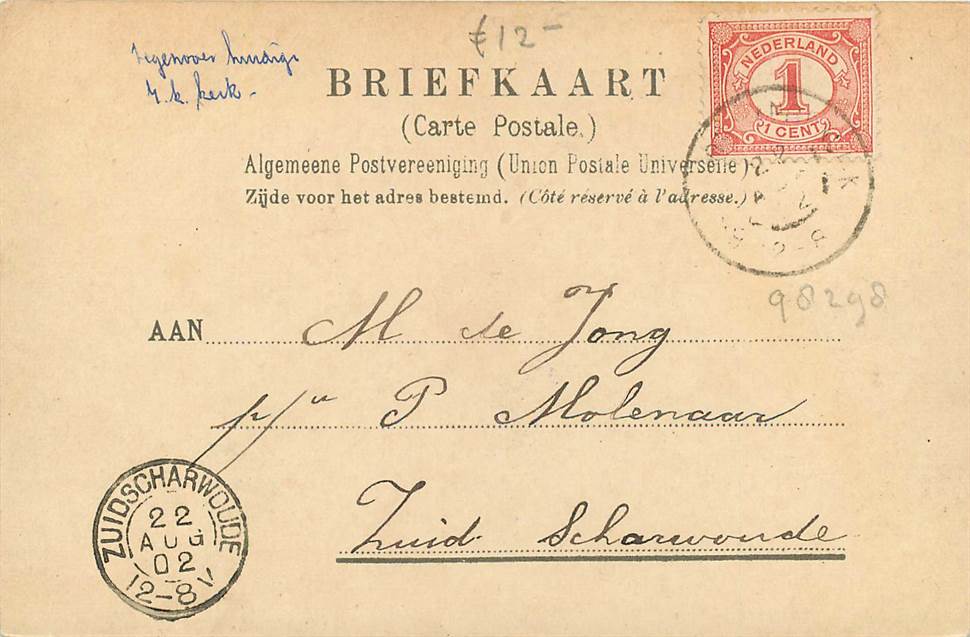 € 12 -
tegenover huidige
r.k. kerk -
BRIEFKAART
(Carte Postale.)
Algemeene Postvereeniging (Union Postale Universelle).
Zijde voor het adres bestemd. (Côté réservé à l'adresse.)
NEDERLAND
1
1 CENT
12-8
98298
AAN M de Jong
p/a P Molenaar
Zuid Scharwoude
ZUIDSCHARWOUDE
22
AUG
02
12-8V